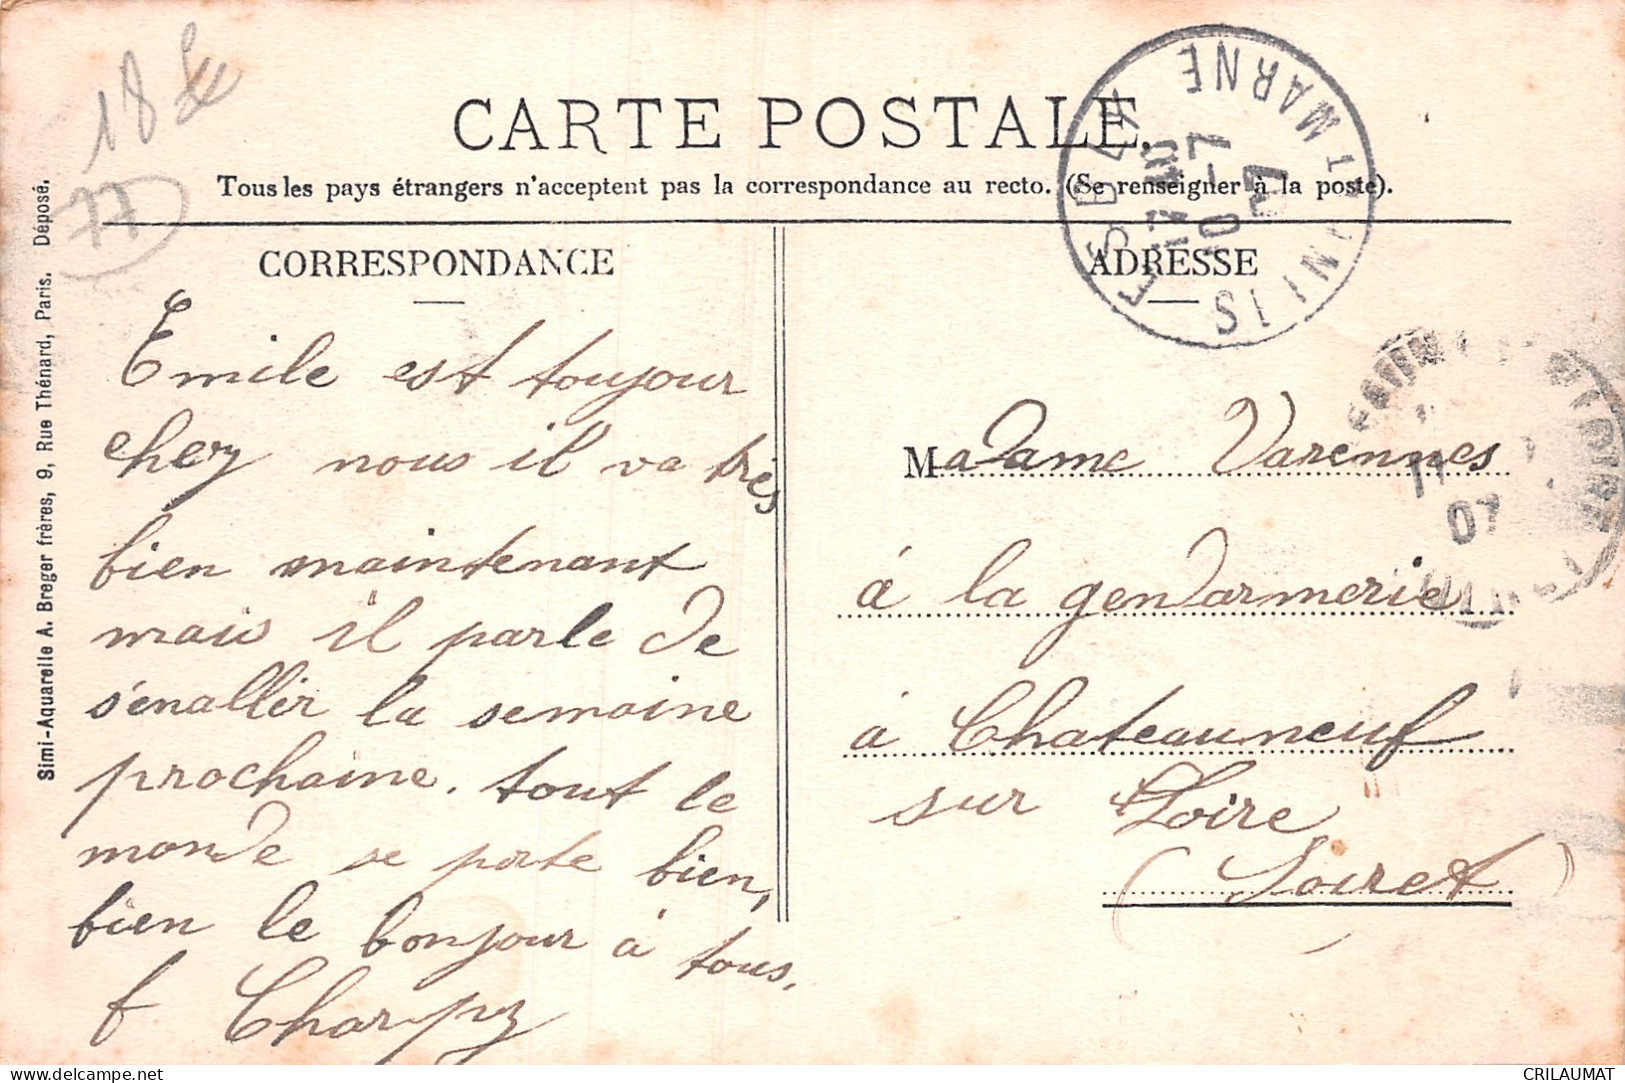 18
77
CARTE POSTALE.
Tous les pays étrangers n'acceptent pas la correspondance au recto. (Se renseigner à la poste).
Simi-Aquarelle A. Breger frères, 9, Rue Thénard, Paris. Déposé.
CORRESPONDANCE
Emile est toujour
chez nous il va très
bien maintenant
mais il parle de
s'enallér la semaine
prochaine. tout le
monde se porte bien,
bien le bonjour à tous.
f Charpy
ADRESSE
SEINE ET MARNE
7-10
07
Madame Varennes
à la gendarmerie
à Chateauneuf
sur Loire
(Loiret)
07
CRILAUMAT
delcampe.net